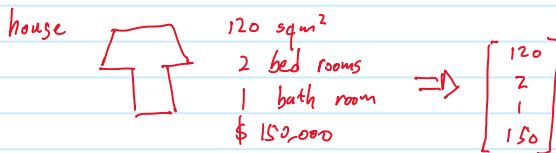 house
120 sqm²
2 bed rooms
1 bath room
$ 150,000
⇒
120
2
1
150